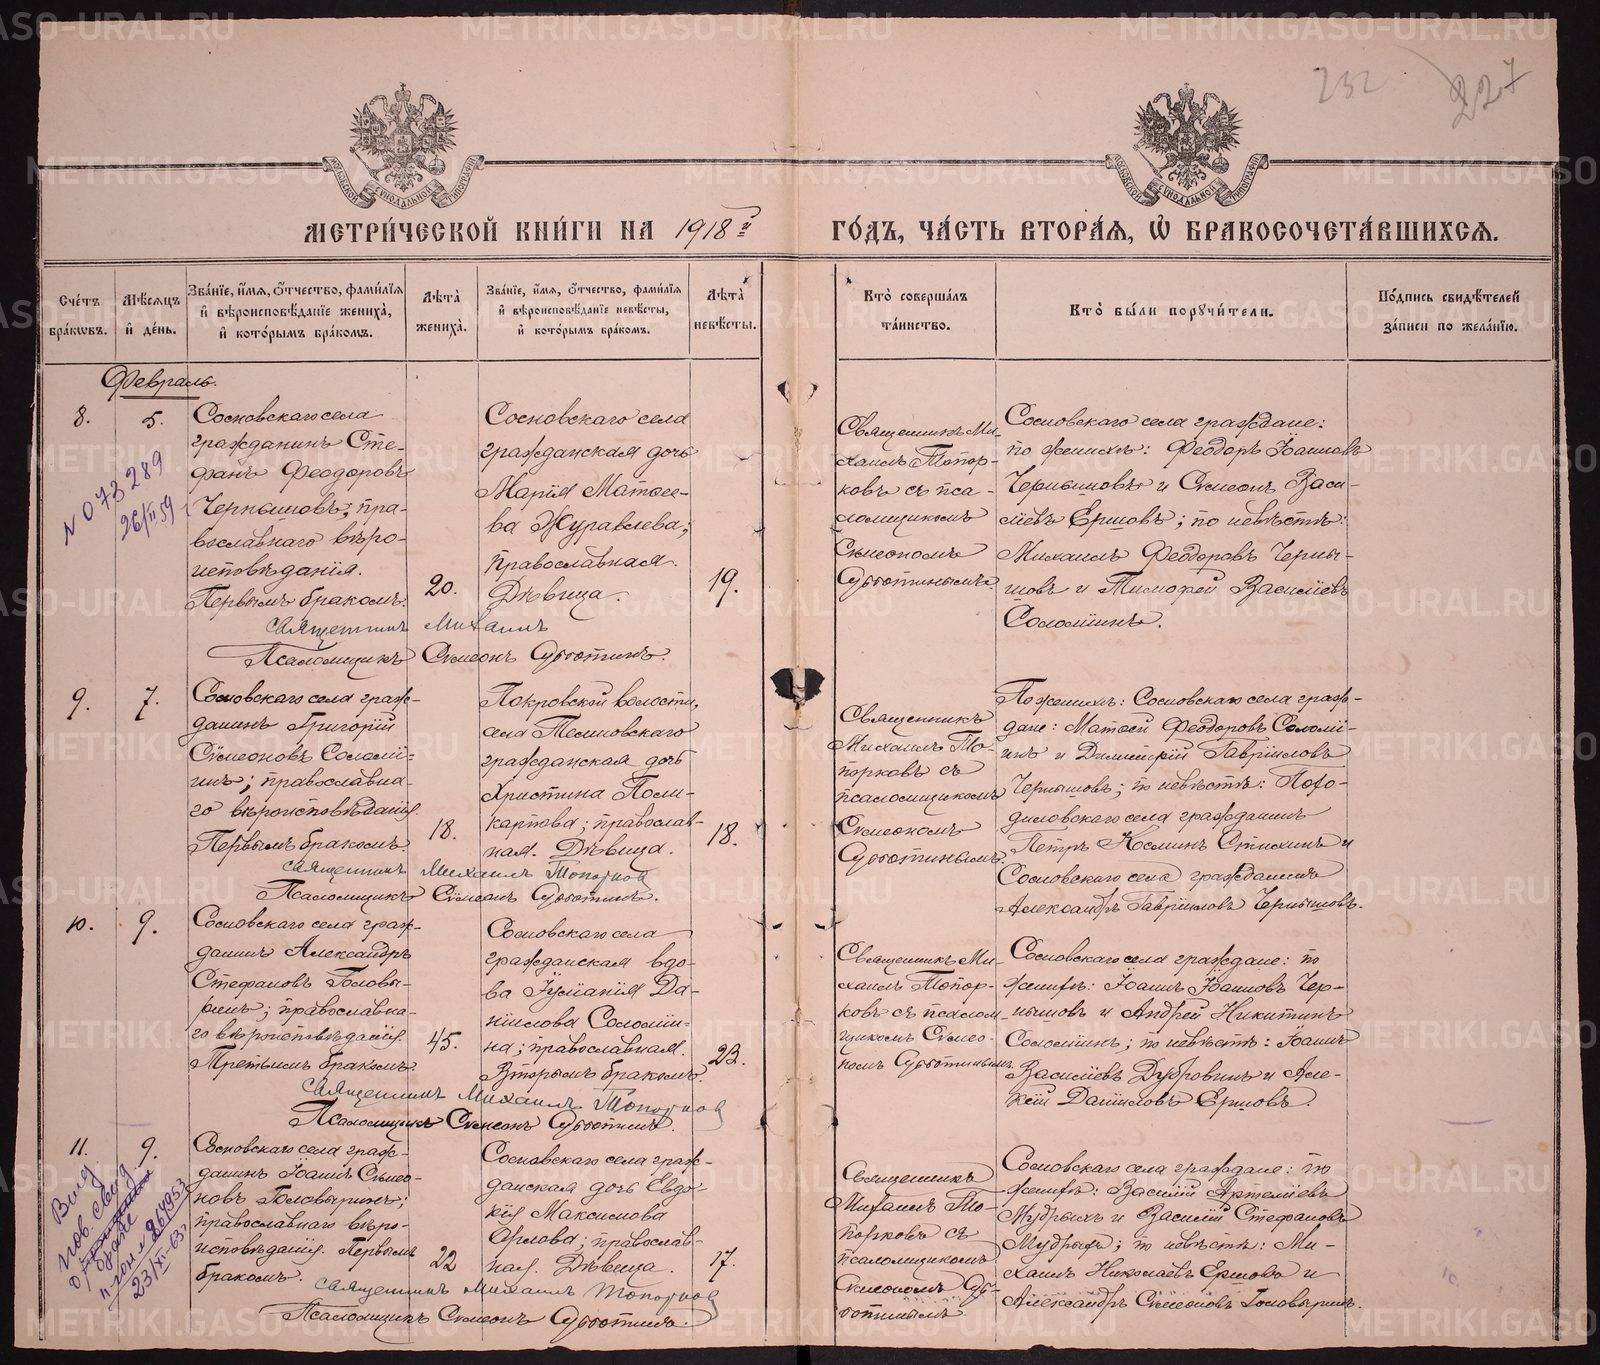 232
227
МОСКОВСКОЙ СУНОДАЛЬНОЙ ТИПОГРАФІИ
МОСКОВСКОЙ СУНОДАЛЬНОЙ ТИПОГРАФІИ
МЕТРИ́ЧЕСКОЙ КНИ́ГИ НА 1918й ГО́ДЪ, ЧА́СТЬ ВТОРА́Я, Ѡ БРАКОСОЧЕТА́ВШИХСЯ.
Сче́тъ
бра́кѡвъ.
Мѣ́сяцъ
и҆ де́нь.
Зва́ніе, и҆́мя, ѻ҆́тчество, фами́лія
и҆ вѣроисповѣ́даніе жениха̀,
и҆ кото́рымъ бра́комъ.
Лѣта̀
жениха̀.
Зва́ніе, и҆́мя, ѻ҆́тчество, фами́лія
и҆ вѣроисповѣ́даніе невѣ́сты,
и҆ кото́рымъ бра́комъ.
Лѣта̀
невѣ́сты.
Кто̀ соверша́лъ
та́инство.
Кто̀ бы́ли порꙋчи́тели.
По́дпись свидѣ́телей
за́писи по жела́нію.
Февраль.
8.
5.
N 073289
26/II 59 г
Сосновскаго села
гражданинъ Сте-
фанъ Феодоровъ
Чернышовъ; пра-
вославнаго вѣро-
исповѣданія.
Первымъ бракомъ.
20.
Сосновскаго села
гражданская дочь
Марія Матѳее-
ва Журавлева;
православная.
Дѣвица.
19.
Священникъ Ми-
хаилъ Топор-
ковъ съ пса-
ломщикомъ
Сѵмеономъ
Субботинымъ.
Сосновскаго села граждане:
по женихѣ: Феодоръ Іоанновъ
Чернышовъ и Сѵмеонъ Васи-
ліевъ Ершовъ; по невѣстѣ:
Михаилъ Феодоровъ Черны-
шовъ и Тимофей Василіевъ
Соломинъ.
Священникъ Михаилъ
Псаломщикъ Сѵмеонъ Субботинъ.
9.
7.
Сосновскаго села граж-
данинъ Григорій
Сѵмеоновъ Соломи-
инъ; православна-
го вѣроисповѣданія.
Первымъ бракомъ.
18.
Покровской волости,
села
гражданская дочь
Христина Поли-
карпова; православ-
ная. Дѣвица.
18.
Священникъ
Михаилъ То-
порковъ съ
псаломщикомъ
Сѵмеономъ
Субботинымъ.
По женихѣ: Сосновскаго села граж-
дане: Матѳей Феодоровъ Соломи-
инъ и Димитрій Гавріиловъ
Чернышовъ; по невѣстѣ:
села гражданинъ
Петръ Косминъ и
Сосновскаго села гражданинъ
Александръ Гавріиловъ Чернышовъ.
Священникъ Михаилъ Топорков
Псаломщикъ Сѵмеонъ Субботинъ.
10.
9.
Сосновскаго села граж-
данинъ Александръ
Стефановъ Головы-
ринъ; православна-
го вѣроисповѣданія.
Третьимъ бракомъ.
45.
Сосновскаго села
гражданская вдо-
ва Іуліанія Да-
ніилова Соломи-
на; православная.
Вторымъ бракомъ.
23.
Священникъ Ми-
хаилъ Топор-
ковъ съ псалом-
щикомъ Сѵмео-
номъ Субботинымъ.
Сосновскаго села граждане: по
женихѣ: Іоаннъ Іоанновъ Чер-
нышовъ и Андрей Никитинъ
Соломинъ; по невѣстѣ: Іоаннъ
Василіевъ Дубровинъ и Але-
ксій Даниловъ Ершовъ.
Священникъ Михаилъ Топорков
Псаломщикъ Сѵмеонъ Субботинъ.
11.
9.
Выд.
пов. свид
о браке
23/XI-63г
Сосновскаго села граж-
данинъ Іоаннъ Сѵмео-
новъ Головыринъ;
православнаго вѣро-
исповѣданія. Первымъ
бракомъ.
22
Сосновскаго села граж-
данская дочь Евдо-
кія Максимова
Орлова; православ-
ная. Дѣвица.
17.
Священникъ
Михаилъ То-
порковъ съ
псаломщикомъ
Сѵмеономъ Суб-
ботинымъ
Сосновскаго села граждане: по
женихѣ: Василій Артеміевъ
Мудрыхъ и Василій Стефановъ
Мудрыхъ; по невѣстѣ: Ми-
хаилъ Николаевъ Ершовъ и
Александръ Сѵмеоновъ Головыринъ.
Священникъ Михаилъ Топорков
Псаломщикъ Сѵмеонъ Субботинъ.
METRIKI.GASO-URAL.RU